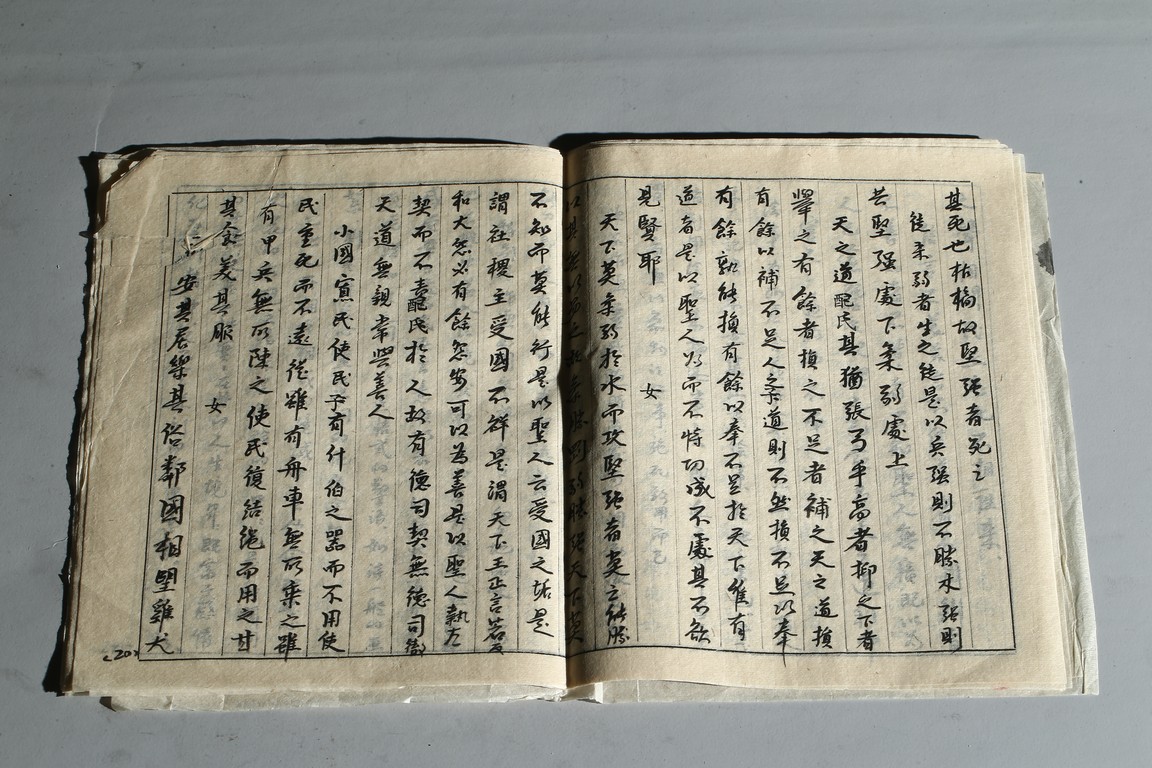 其死也枯槁故堅强者死之
徒柔弱者生之徒是以兵强則不勝木强則
共堅强處下柔弱處上
天之道配民其猶張弓乎高者抑之下者
舉之有餘者損之不足者補之天之道損
有餘以補不足人之道則不然損不足以奉
有餘孰能損有餘以奉不足於天下惟有
道者是以聖人為而不恃功成不處其不欲
見賢耶 女
天下莫柔弱於水而攻堅强者莫之能勝
以其無以易之也柔勝剛弱勝强天下莫
不知而莫能行是以聖人云受國之垢是
謂社稷主受國不祥是謂天下王正言若反
和大怨必有餘怨安可以為善是以聖人執左
契而不責配民於人故有德司契無德司徹
天道無親常與善人
小國寡民使民予有什伯之器而不用使
民重死而不遠徙雖有舟車無所乘之雖
有甲兵無所陳之使民復結繩而用之甘
其食美其服 女
安其居樂其俗鄰國相望雞犬
<20>